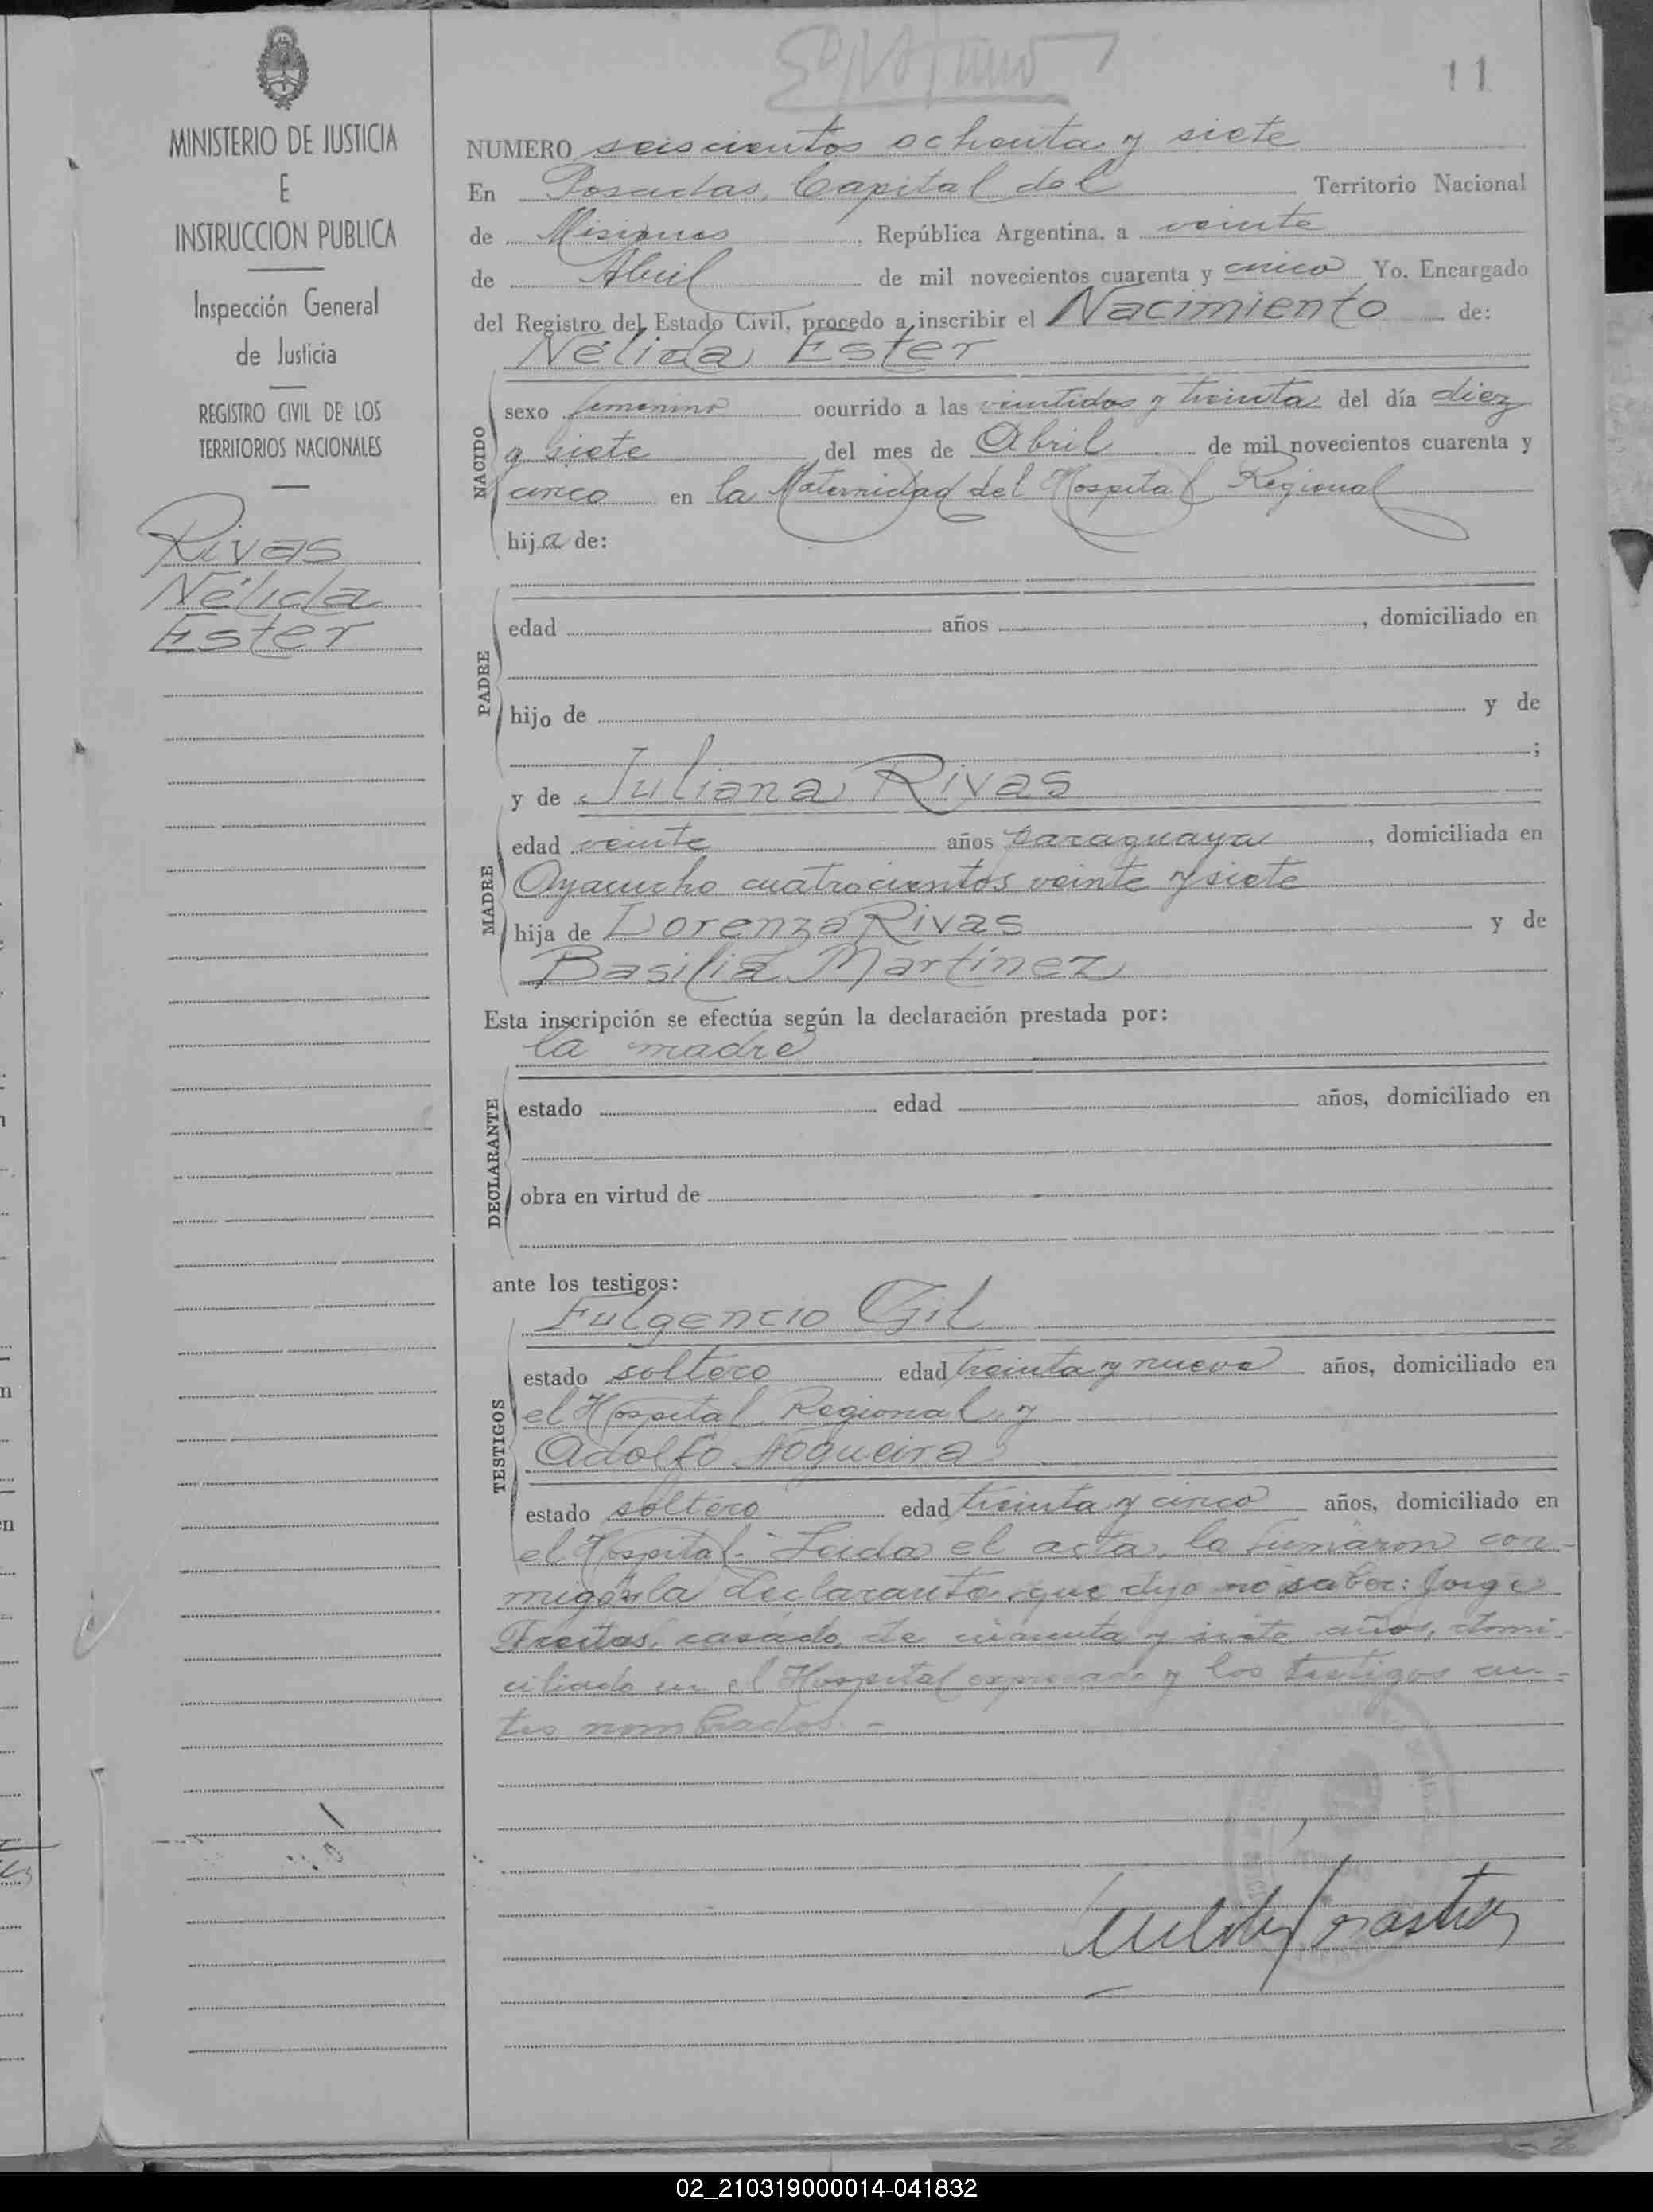 11
MINISTERIO DE JUSTICIA
E
INSTRUCCION PUBLICA
Inspección General
de Justicia
REGISTRO CIVIL DE LOS
TERRITORIOS NACIONALES
Rivas
Nélida
Ester
NUMERO seiscientos ochenta y siete
En Posadas, Capital del Territorio Nacional
de Misiones, República Argentina, a veinte
de Abril de mil novecientos cuarenta y cinco Yo, Encargado
del Registro del Estado Civil, procedo a inscribir el Nacimiento de:
Nélida Ester
NACIDO
sexo femenino ocurrido a las veintidos y treinta del día diez
y siete del mes de Abril de mil novecientos cuarenta y
cinco en la Maternidad del Hospital Regional
hija de:
PADRE
edad años , domiciliado en
hijo de y de
;
y de Juliana Rivas
MADRE
edad veinte años paraguaya, domiciliada en
Ayacucho cuatrocientos veinte y siete
hija de Lorenza Rivas y de
Basilia Martínez
Esta inscripción se efectúa según la declaración prestada por:
la madre
DECLARANTE
estado edad años, domiciliado en
obra en virtud de
ante los testigos:
Fulgencio Gil
TESTIGOS
estado soltero edad treinta y nueve años, domiciliado en
el Hospital Regional y
Adolfo Nogueira
estado soltero edad treinta y cinco años, domiciliado en
el Hospital.- Leida el acta, la firmaron con-
migo la declarante, que dijo no saber: Jorge
Freitas, casado de cuarenta y siete años, domi-
ciliado en el Hospital expresado y los testigos an-
tes nombrados.-
02_210319000014-041832